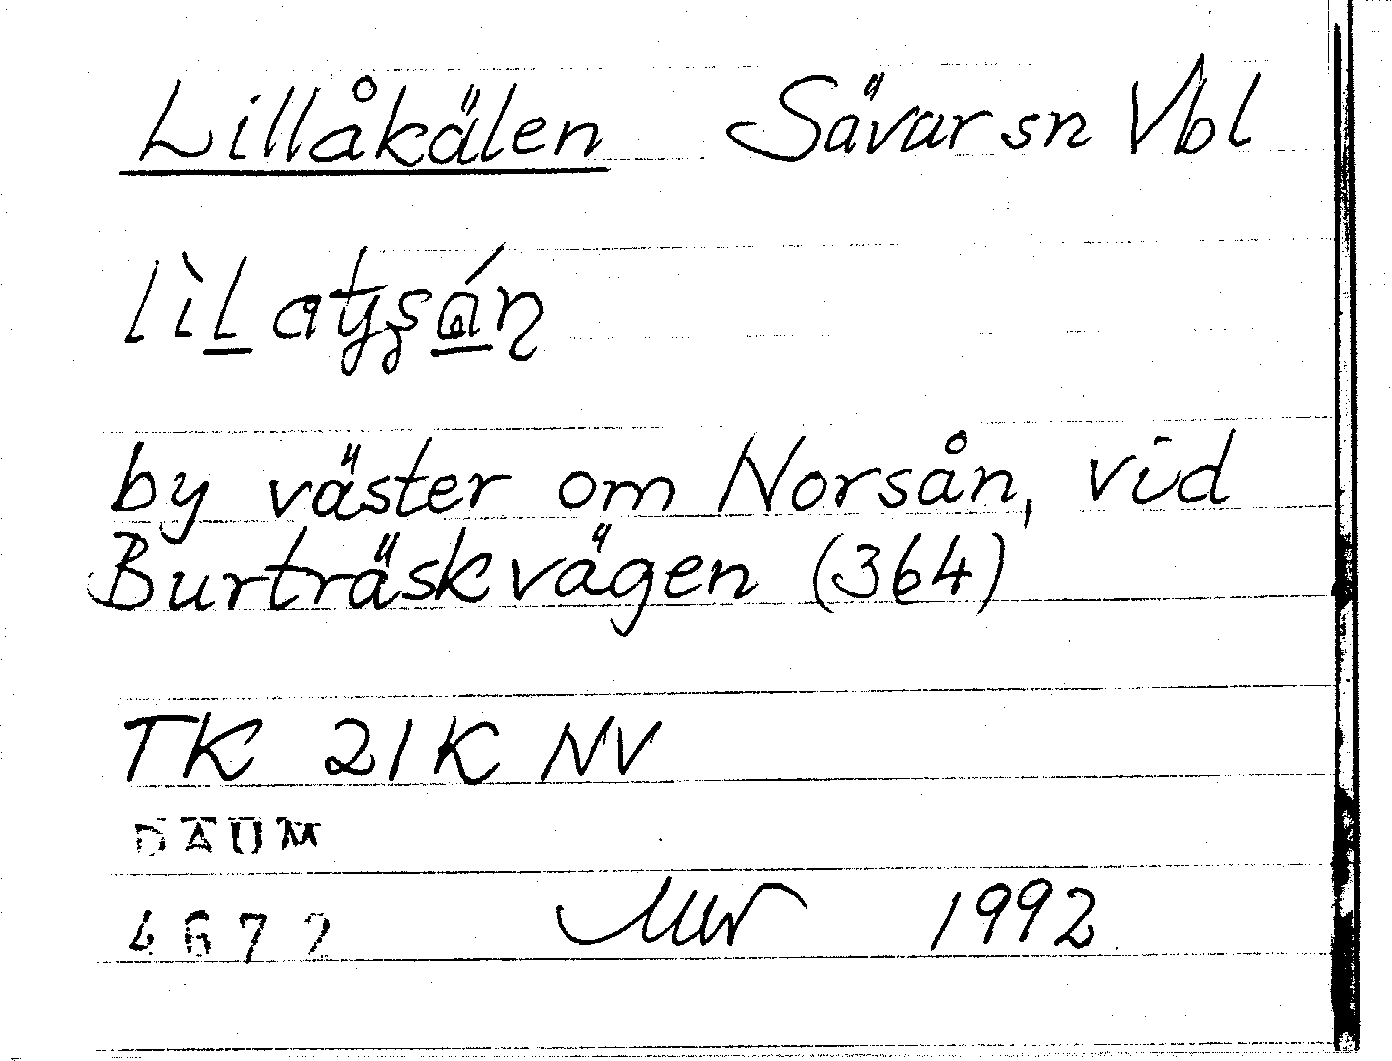 Lillåkälen Sävar sn Vbl
by väster om Norsån, vid
Burträskvägen (364)
TK 21K NV
DAUM
4672 1992